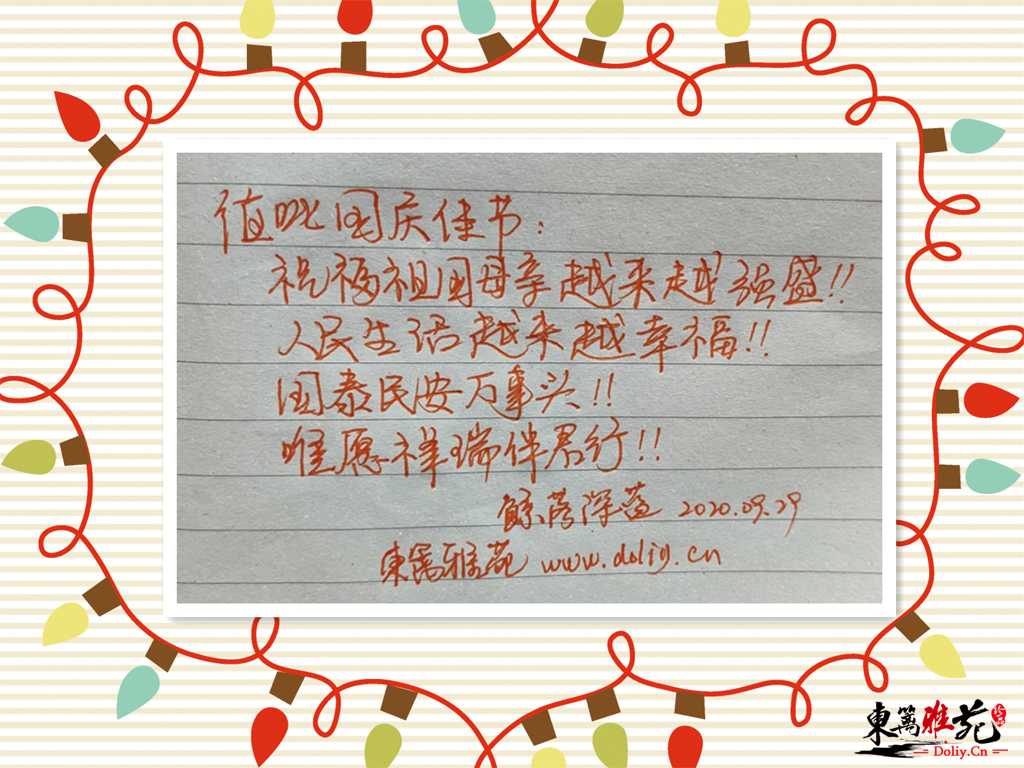 值此国庆佳节：
祝福祖国母亲越来越强盛!!
人民生活越来越幸福!!
国泰民安万事兴!!
唯愿祥瑞伴君行!!
鲸落深蓝 2020.09.29
東篱雅苑 www.doliy.cn
東篱雅苑
Doliy.Cn